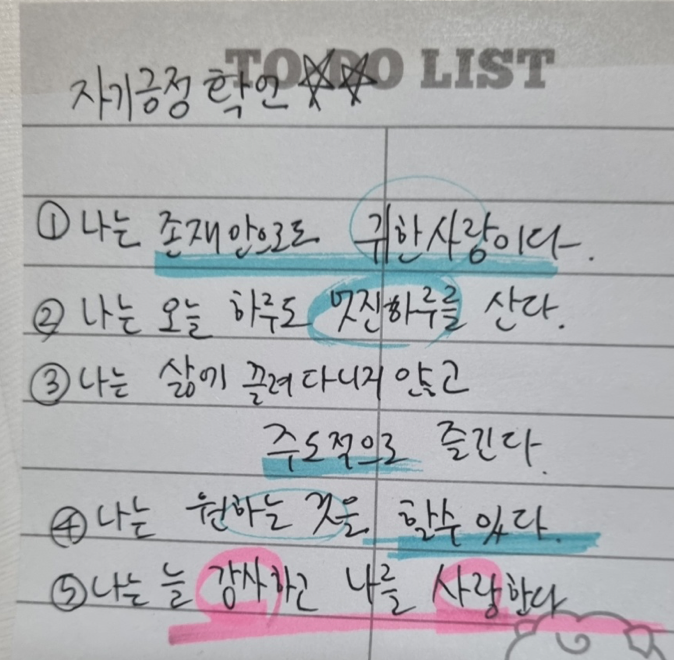 TO DO LIST
자기긍정 확언 ☆☆
① 나는 존재만으로도 귀한사람이다.
② 나는 오늘 하루도 멋진하루를 산다.
③ 나는 삶에 끌려다니지 않고
주도적으로 즐긴다.
④ 나는 원하는 것을 할수 있다.
⑤ 나는 늘 감사하고 나를 사랑한다